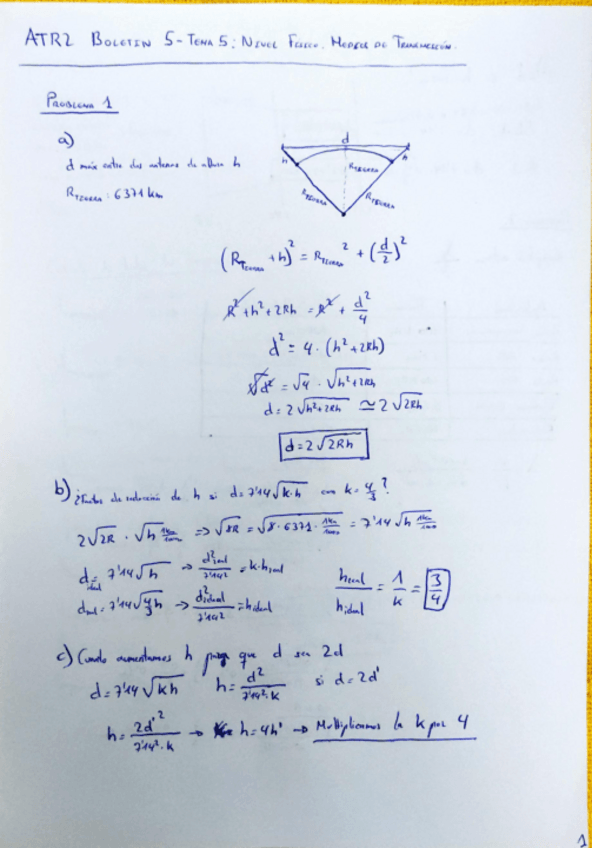 ATR2 BOLETIN 5 - TEMA 5: NIVEL FISICO. MEDIOS DE TRANSMISIÓN.
PROBLEMA 1
a)
d máx entre dos antenas de altura h
R_TIERRA : 6371 km
d
h h
R_TIERRA
R_TIERRA R_TIERRA
(R_TIERRA + h)² = R_TIERRA² + (d/2)²
R² + h² + 2Rh = R² + d²/4
d² = 4 · (h² + 2Rh)
√d² = √4 · √h²+2Rh
d = 2√h²+2Rh ≃ 2√2Rh
d = 2√2Rh
b) ¿Factor de reducción de h si d = 7'14√k·h con k = 4/3?
2√2R · √h 1km/1000 ⇒ √8R = √8·6371·1km/1000 = 7'14√h 1km/1000
d_ideal = 7'14√h → d²real/7'14² = k·h_real
d_real = 7'14√4/3 h → d²ideal/7'14² = h_ideal
h_real/h_ideal = 1/k = 3/4
c) Cuanto aumentamos h para que d sea 2d
d = 7'14√kh h = d²/7'14²·k si d = 2d'
h = 2d'²/7'14²·k → h = 4h' → Multiplicamos la k por 4
1